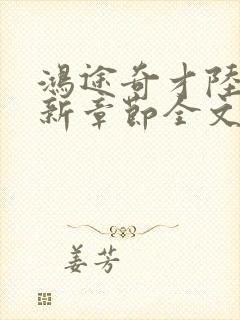 鴻途奇才陸
新章節全文
姜芳